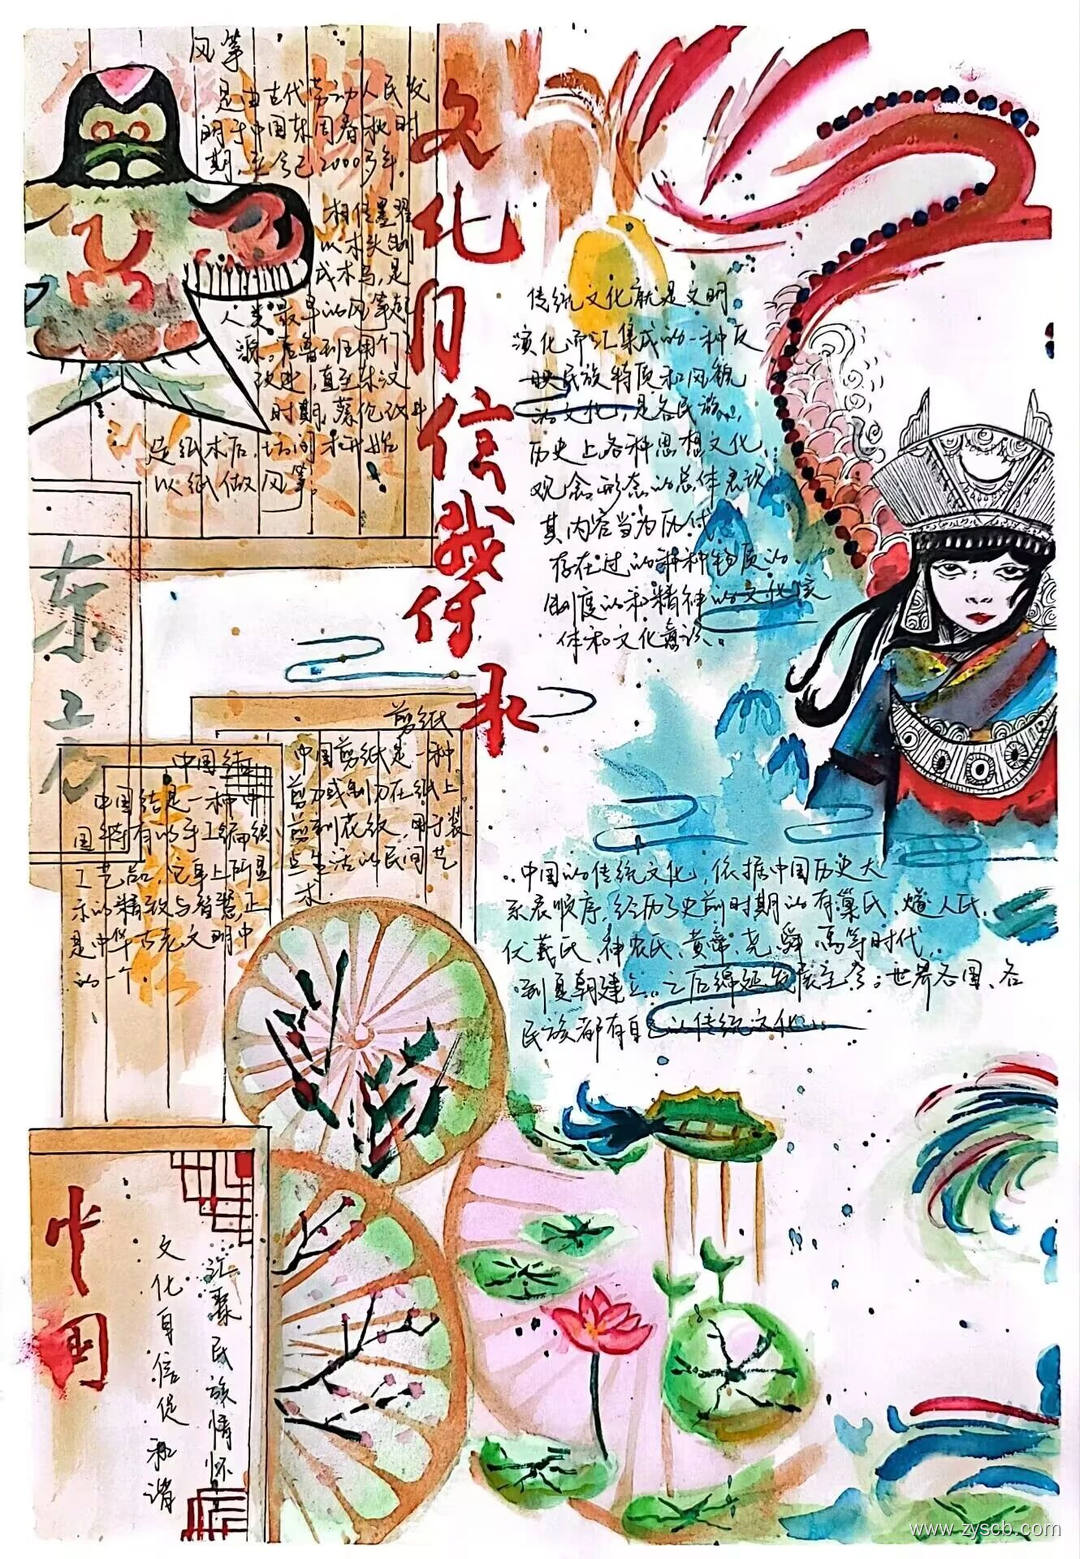 文化自信我传承
风筝
是由古代劳动人民发
明于中国东周春秋时
期,至今已2000多年。
相传墨翟
以木头制
成木鸟,是
人类最早的风筝起
源。后鲁班用竹
改进,直至东汉
时期,蔡伦改进
造纸术后,坊间才开始
以纸做风筝。
传统文化就是文明
演化而汇集成的一种反
映民族特质和风貌
的文化,是各民族
历史上各种思想文化
观念形态的总体表现
其内容当为历代
存在过的种种物质的
制度的和精神的文化实
体和文化意识。
东方
剪纸
中国剪纸是一种
剪刀或刻刀在纸上
剪刻花纹,用于装
点生活的民间艺
术
中国结
中国结是一种中
国特有的手工编织
工艺品,它身上所显
示的精致与智慧正
是中华古老文明中
的一个
中国的传统文化,依据中国历史大
系表顺序,经历了史前时期的有巢氏、燧人氏、
伏羲氏、神农氏、黄帝、尧、舜、禹等时代,
到夏朝建立。之后绵延发展至今。世界各国、各
民族都有自己的传统文化。
中国
汇聚民族情怀
文化自信促和谐
www.zyscb.com